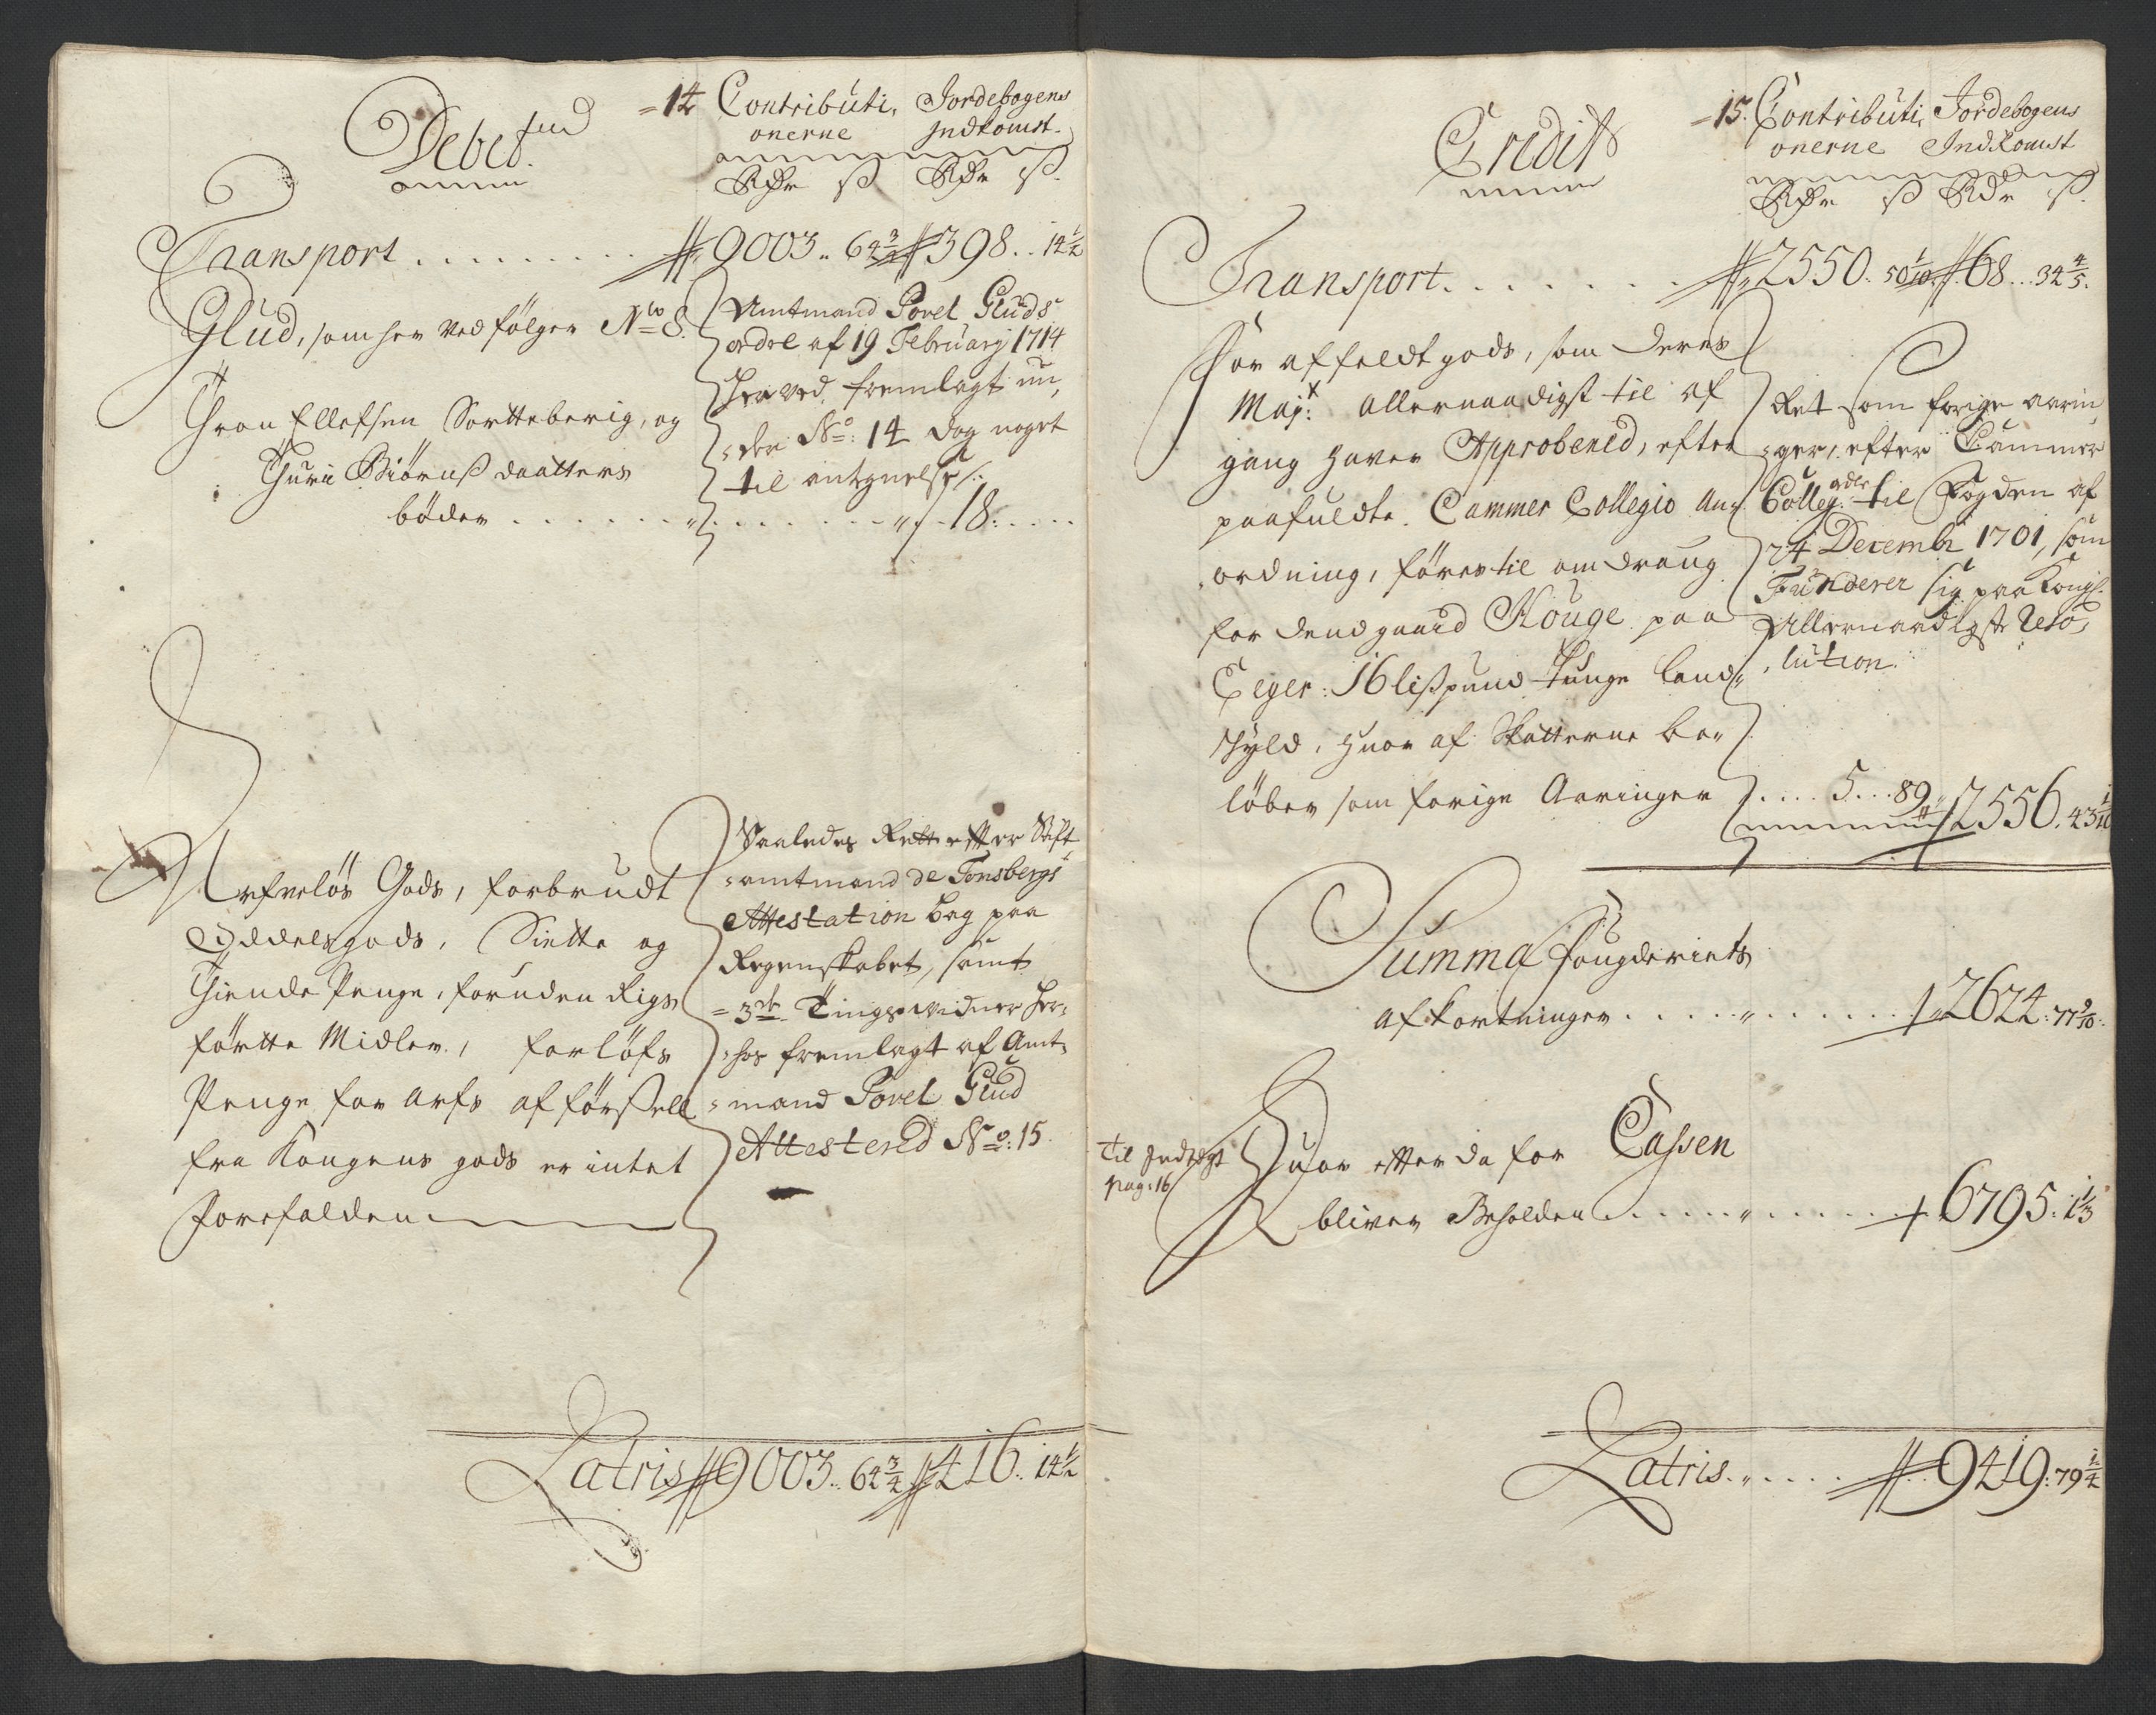 Debet
=14 Contributi, Jordebogens
onerne Indkomst.
Rdr ß Rdr ß.
Transport . . . . . . . . . 9003.. 64 3/4 398.. 14 1/2
Glud, som her ved følger No 8.
Tron Ellefsen Sortteberig, og
Thuri Biørnß daatters
bøder . . . . . . . . . . . . . 18: . . . .
Amtmand Povel Gluds
ordre af 19 Februarj 1714
Her ved fremlagt un,
der No: 14 dog noget
til
Arfveløs Gods, forbrudt
Oddelsgods, Siette og
Tiende Penge, foruden Rigs
førtte Midler, forløfs
Penge for Arfs afførßell
fra Kongens gods er intet
forefalden
Saaledes Rett efter Stift
=amtmand de Tonsbergs
Attestation bag paa
Regenskabet, samt
=3de Tings vidner her,
=hos fremlagt af Amt,
=mand Povel Glud
Attesterid No: 15.
Latris 9003.. 64 3/4 416.. 14 1/2
Credit
=15. Contributi, Jordebogens
onerne Indkomst
Rdr ß Rdr ß.
Transport . . . . . . . 2550. 50 1/10 68... 34 4/5.
For affeldt gods, som Deres
Mayt: allernaadigst til af
gang haver Approberid, efter
paafuldte Cammer Collegio An,
ordning, føres til om drang
for Dend gaard Houge paa
Eger: 16 lißpund tunge land,,
skyld, hvor af Skatterne be,,
løber som forige Aaringer . . . . 5 . . . 89 2556. 43 1/10
Ret som forige aarin
=ger, efter Cammer
Colleg: ordre til Fogden af
24 Decembr 1701, som
Funderer sig paa Kongl.
Allernaadigste Reso,
,lution.
Summa Fougderiets
afkortninger . . . . . . . . . . . 2624: 77 9/10.
Til Indtegt
pag: 16
Hvor effter da for Cassen
bliver Beholden . . . . . . . . . . 6795: 1 1/3
Latris. . . . . . 9419: 79 1/4